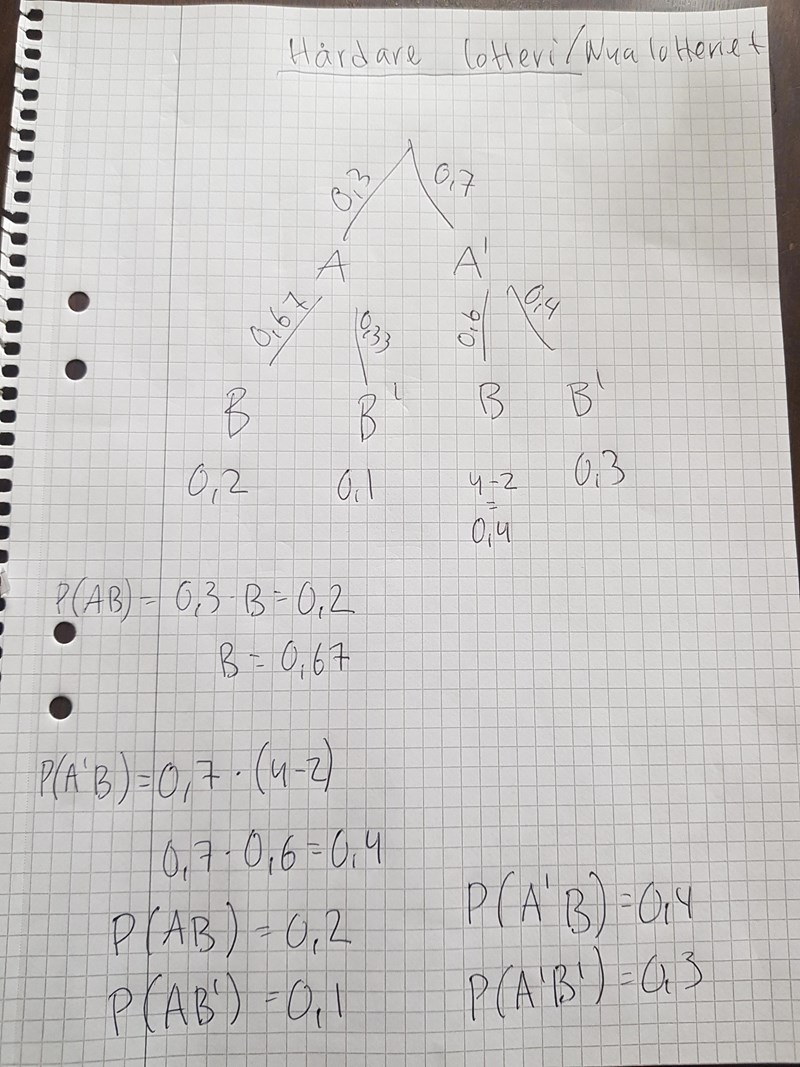 Hårdare lotteri/Nya lotteriet
0,3 0,7
A A'
0,67 0,33 0,6 0,4
B B' B B'
0,2 0,1 4-2 0,3
=
0,4
P(AB) = 0,3 · B = 0,2
B = 0,67
P(A'B) = 0,7 · (4-2)
0,7 · 0,6 = 0,4
P(AB) = 0,2
P(AB') = 0,1
P(A'B) = 0,4
P(A'B') = 0,3